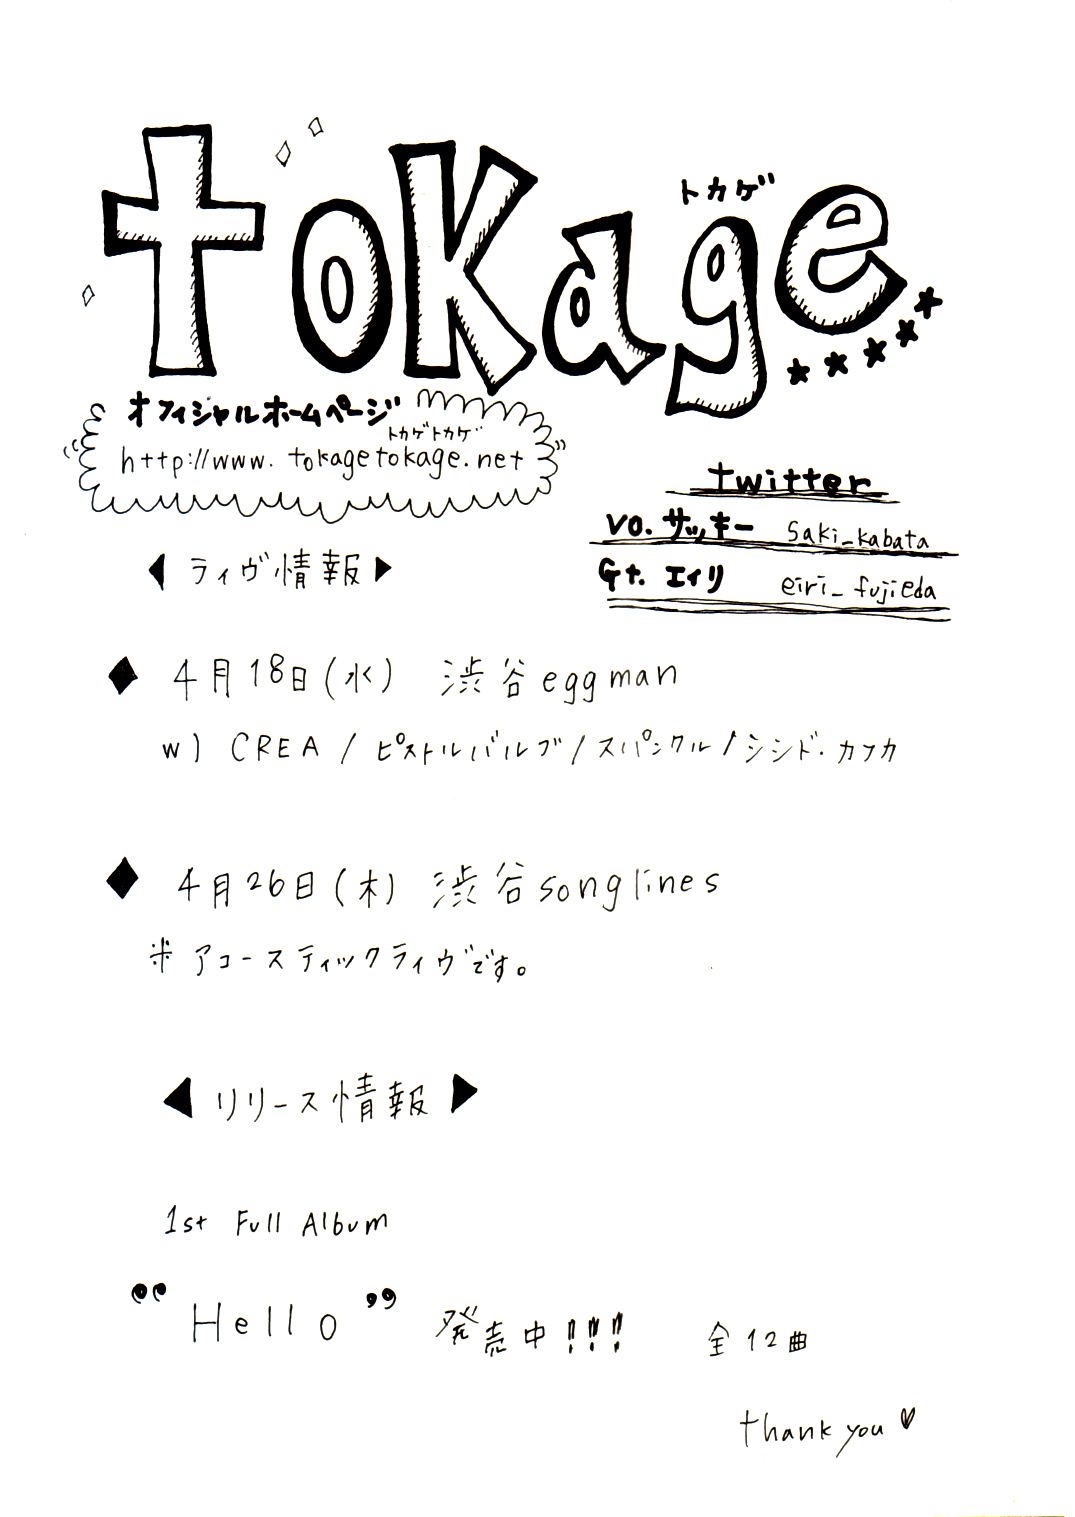 トカゲ
tokage
オフィシャルホームページ
トカゲトカゲ
http://www.tokagetokage.net
twitter
vo. サッキー saki_kabata
Gt. エイリ eiri_fujieda
◀ ライヴ情報 ▶
◆ 4月18日(水) 渋谷eggman
w) CREA / ピストルバルブ / スパンクル / シシド・カフカ
◆ 4月26日(木) 渋谷songlines
※アコースティックライヴです。
◀ リリース情報 ▶
1st Full Album
“Hello” 発売中!!! 全12曲
thank you ♥